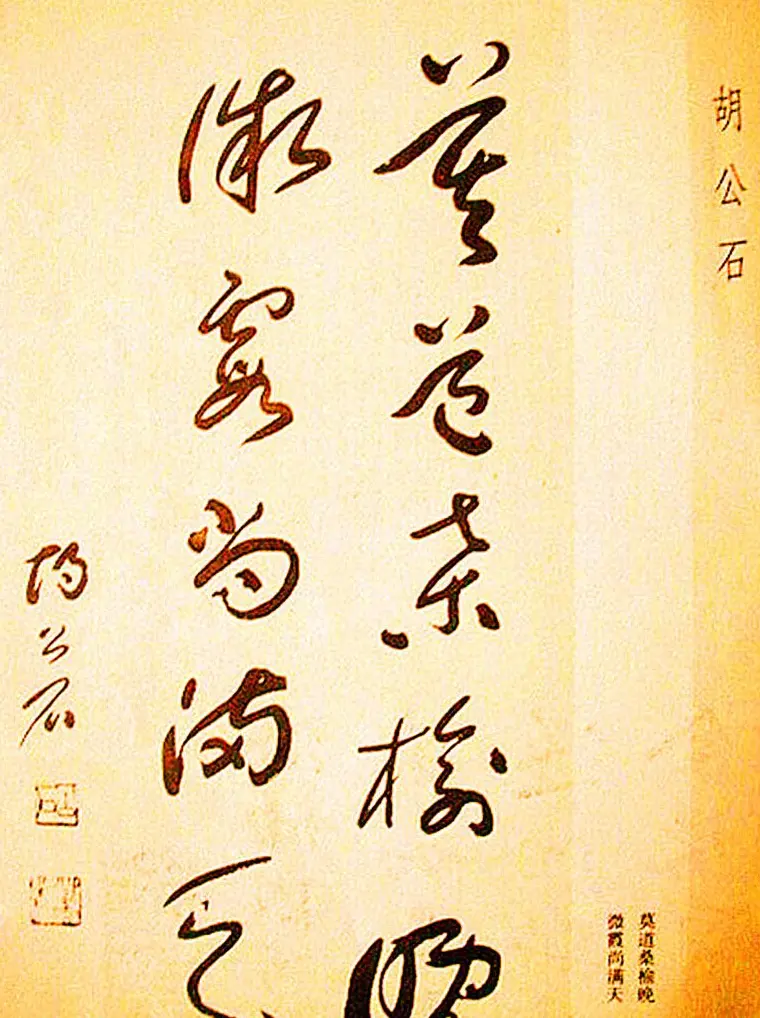 胡公石
莫道桑榆晚
微霞尚满天
胡公石
莫道桑榆晚
微霞尚满天